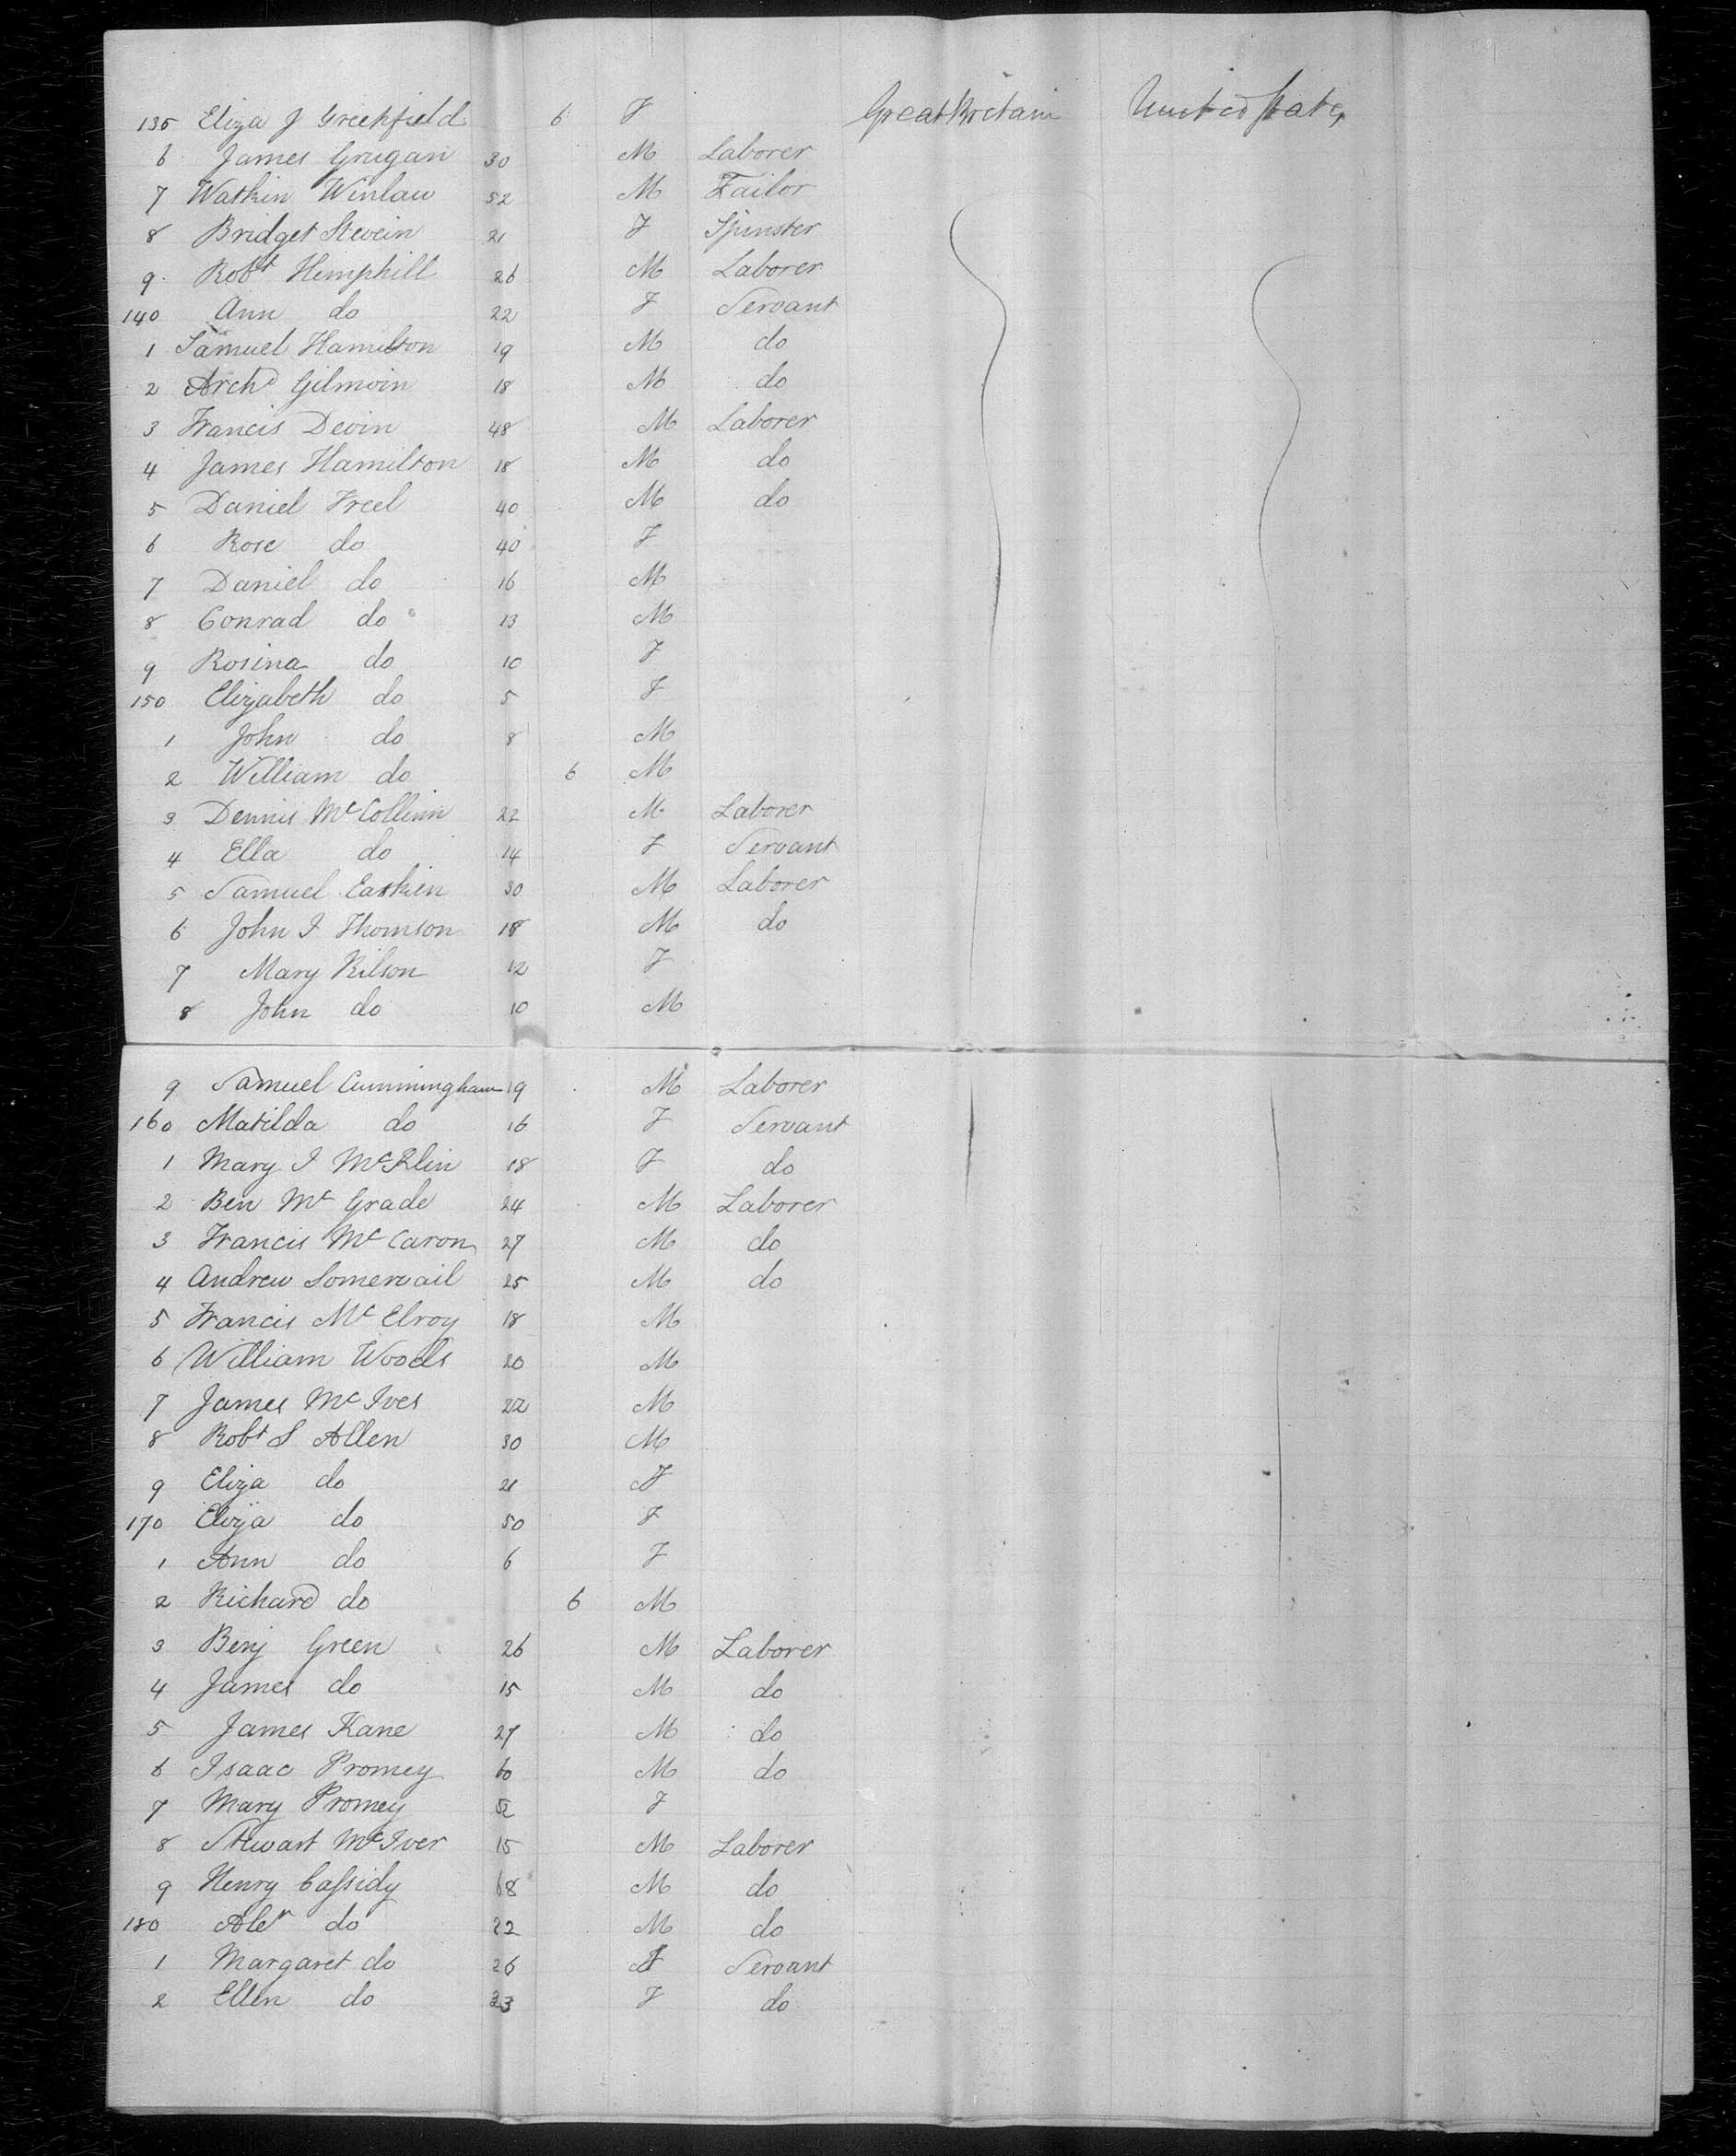 135 Eliza J Greenfield 6 F Great Britain United States
6 James Grugan 30 M Laborer
7 Watkin Winlaw 52 M Tailor
8 Bridget Stevein 21 F Spinster
9 Robt Hemphill 26 M Laborer
140 Ann do 22 F Servant
1 Samuel Hamilton 19 M do
2 Archd Gilmoin 18 M do
3 Francis Devin 48 M Laborer
4 James Hamilton 18 M do
5 Daniel Freel 40 M do
6 Rose do 40 F
7 Daniel do 16 M
8 Conrad do 13 M
9 Rosina do 10 F
150 Elizabeth do 5 F
1 John do 8 M
2 William do 6 M
3 Dennis McCollinn 22 M Laborer
4 Ella do 14 F Servant
5 Samuel Easkien 30 M Laborer
6 John J Thomson 18 M do
7 Mary Kilson 12 F
8 John do 10 M
9 Samuel Cunningham 19 M Laborer
160 Matilda do 16 F Servant
1 Mary J McKlin 18 F do
2 Ben Mc Grade 24 M Laborer
3 Francis Mc Caron 27 M do
4 Andrew Somervail 25 M do
5 Francis Mc Elroy 18 M
6 William Woods 20 M
7 James Mc Ives 22 M
8 Robt S Allen 30 M
9 Eliza do 21 F
170 Eliza do 50 F
1 Ann do 6 F
2 Richard do 6 M
3 Benj Green 26 M Laborer
4 James do 15 M do
5 James Kane 27 M do
6 Isaac Promey 60 M do
7 Mary Promey 52 F
8 Stewart McIver 15 M Laborer
9 Henry Cassidy 68 M do
180 Aler do 22 M do
1 Margaret do 26 F Servant
2 Ellen do 23 F do